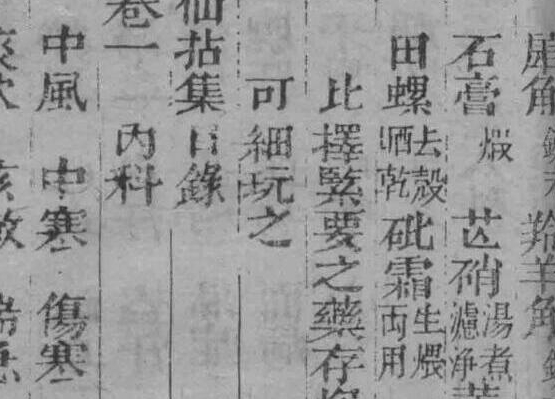 犀角 羚羊角
石膏 煅 芒硝 湯煮濾净
田螺 去殼晒乾 砒霜 生煨両用
比擇緊要之藥存
可細玩之
仙拈集目錄
卷一 內科
中風 中寒 傷寒